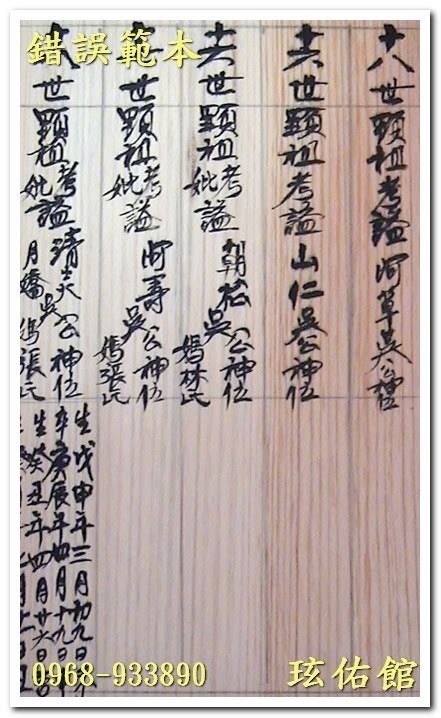 錯誤範本
十八世顯祖考諡阿草吳公神位
十六世顯祖考諡山仁吳公神位
十六世顯祖考妣諡朝松吳公神位媽林氏
世顯祖考妣諡阿壽吳公神位媽張氏
八世顯祖考妣諡清炎吳公神位月嬌媽張氏
生戊申年三月初九日
卒庚辰年四月十九日
生癸丑年四月廿六日
0968-933890
玹佑館